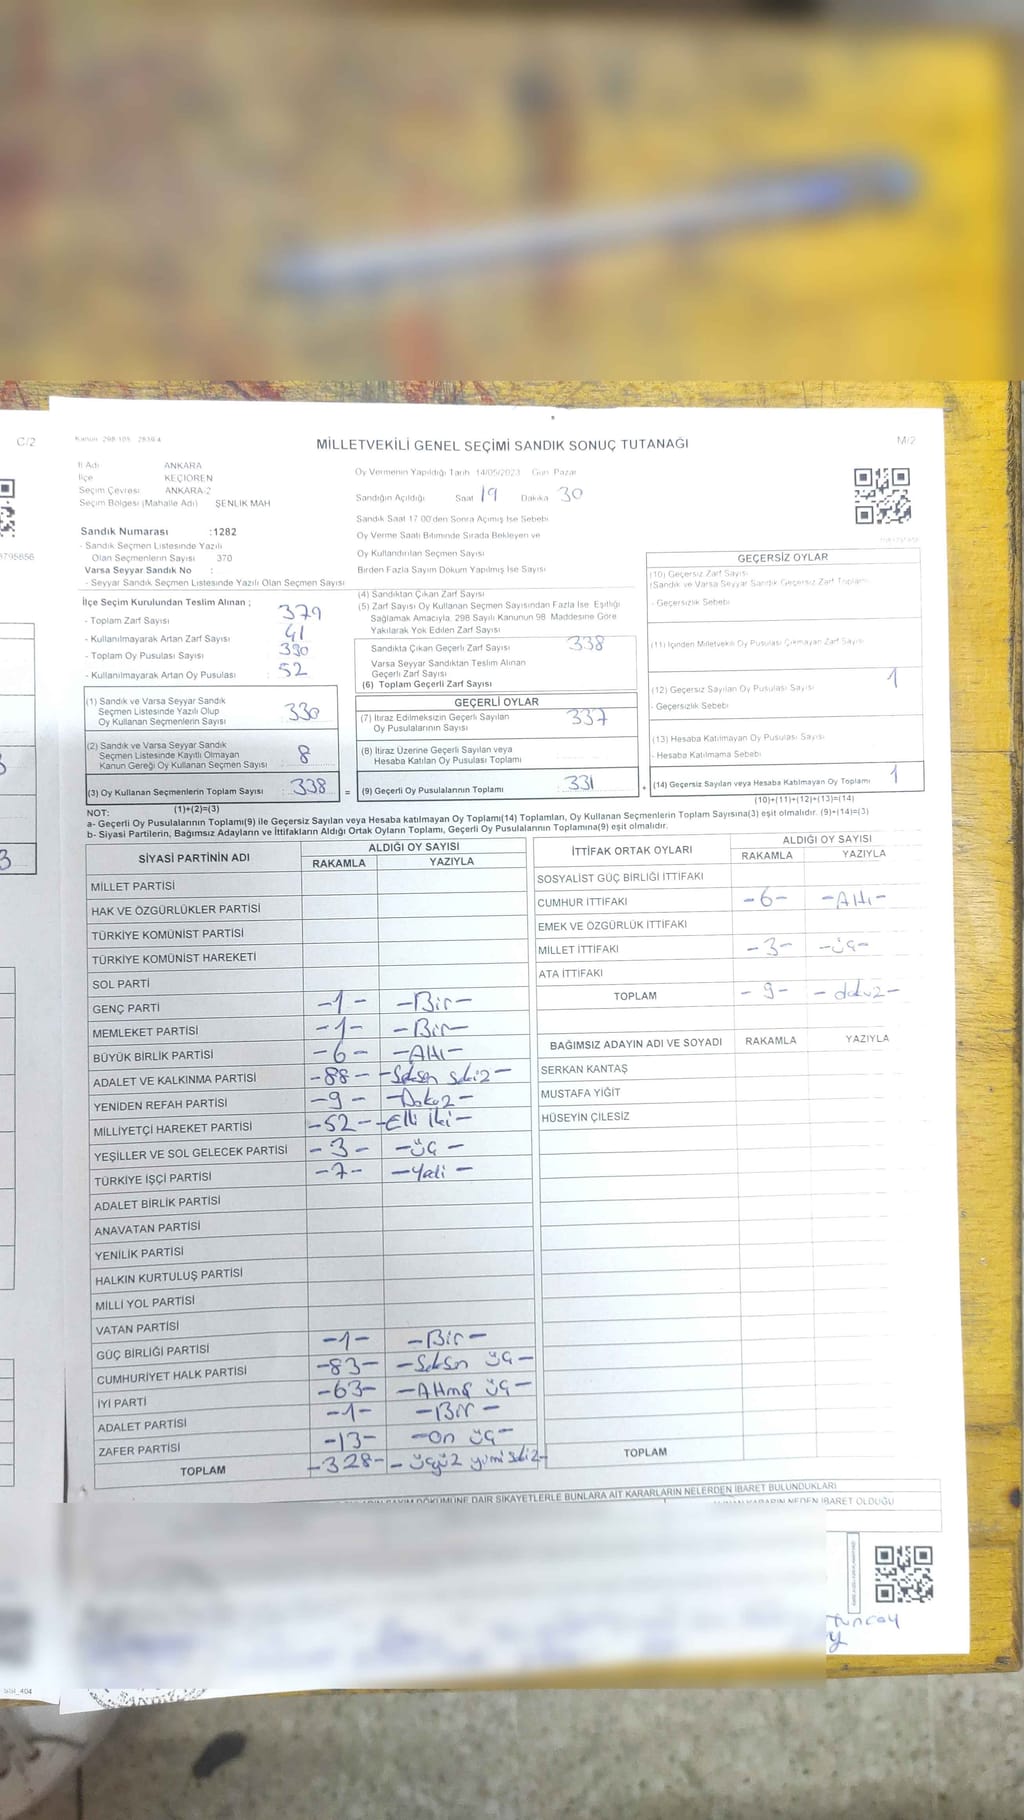 C/2
Kanun 298-109 2839-4
MİLLETVEKİLİ GENEL SEÇİMİ SANDIK SONUÇ TUTANAĞI
M/2
İl Adı ANKARA
İlçe KEÇİÖREN
Seçim Çevresi ANKARA-2
Seçim Bölgesi (Mahalle Adı) ŞENLİK MAH
Oy Vermenin Yapıldığı Tarih 14/05/2023 Gün Pazar
Sandığın Açıldığı Saat 19 Dakika 30
Sandık Saat 17.00'den Sonra Açımış İse Sebebi
Oy Verme Saati Bitiminde Sırada Bekleyen ve
Oy Kullandırılan Seçmen Sayısı
Birden Fazla Sayım Döküm Yapılmış İse Sayısı
Sandık Numarası :1282
- Sandık Seçmen Listesinde Yazılı
Olan Seçmenlerin Sayısı 370
Varsa Seyyar Sandık No :
- Seyyar Sandık Seçmen Listesinde Yazılı Olan Seçmen Sayısı
İlçe Seçim Kurulundan Teslim Alınan ;
- Toplam Zarf Sayısı : 379
- Kullanılmayarak Artan Zarf Sayısı : 41
- Toplam Oy Pusulası Sayısı : 390
- Kullanılmayarak Artan Oy Pusulası : 52
(1) Sandık ve Varsa Seyyar Sandık
Seçmen Listesinde Yazılı Olup
Oy Kullanan Seçmenlerin Sayısı : 330
(2) Sandık ve Varsa Seyyar Sandık
Seçmen Listesinde Kayıtlı Olmayan
Kanun Gereği Oy Kullanan Seçmen Sayısı : 8
(3) Oy Kullanan Seçmenlerin Toplam Sayısı : 338 =
(1)+(2)=(3)
(4) Sandıktan Çıkan Zarf Sayısı
(5) Zarf Sayısı Oy Kullanan Seçmen Sayısından Fazla İse Eşitliği
Sağlamak Amacıyla, 298 Sayılı Kanunun 98. Maddesine Göre
Yakılarak Yok Edilen Zarf Sayısı
Sandıkta Çıkan Geçerli Zarf Sayısı 338
Varsa Seyyar Sandıktan Teslim Alınan
Geçerli Zarf Sayısı
(6) Toplam Geçerli Zarf Sayısı
GEÇERLİ OYLAR
(7) İtiraz Edilmeksizin Geçerli Sayılan
Oy Pusulalarının Sayısı 337
(8) İtiraz Üzerine Geçerli Sayılan veya
Hesaba Katılan Oy Pusulası Toplamı
(9) Geçerli Oy Pusulalarının Toplamı : 331 +
GEÇERSİZ OYLAR
(10) Geçersiz Zarf Sayısı
(Sandık ve Varsa Seyyar Sandık Geçersiz Zarf Toplamı
- Geçersizlik Sebebi
(11) İçinden Milletvekili Oy Pusulası Çıkmayan Zarf Sayısı
(12) Geçersiz Sayılan Oy Pusulası Sayısı 1
- Geçersizlik Sebebi
(13) Hesaba Katılmayan Oy Pusulası Sayısı
- Hesaba Katılmama Sebebi
(14) Geçersiz Sayılan veya Hesaba Katılmayan Oy Toplamı 1
(10)+(11)+(12)+(13)=(14)
NOT:
a- Geçerli Oy Pusulalarının Toplamı(9) ile Geçersiz Sayılan veya Hesaba katılmayan Oy Toplamı(14) Toplamları, Oy Kullanan Seçmenlerin Toplam Sayısına(3) eşit olmalıdır. (9)+(14)=(3)
b- Siyasi Partilerin, Bağımsız Adayların ve İttifakların Aldığı Ortak Oyların Toplamı, Geçerli Oy Pusulalarının Toplamına(9) eşit olmalıdır.
SİYASİ PARTİNİN ADI ALDIĞI OY SAYISI
RAKAMLA YAZIYLA
MİLLET PARTİSİ
HAK VE ÖZGÜRLÜKLER PARTİSİ
TÜRKİYE KOMÜNİST PARTİSİ
TÜRKİYE KOMÜNİST HAREKETİ
SOL PARTİ
GENÇ PARTİ -1- -Bir-
MEMLEKET PARTİSİ -1- -Bir-
BÜYÜK BİRLİK PARTİSİ -6- -Altı-
ADALET VE KALKINMA PARTİSİ -88- -Seksen sekiz-
YENİDEN REFAH PARTİSİ -9- -Dokuz-
MİLLİYETÇİ HAREKET PARTİSİ -52- -Elli iki-
YEŞİLLER VE SOL GELECEK PARTİSİ -3- -üç-
TÜRKİYE İŞÇİ PARTİSİ -7- -Yedi-
ADALET BİRLİK PARTİSİ
ANAVATAN PARTİSİ
YENİLİK PARTİSİ
HALKIN KURTULUŞ PARTİSİ
MİLLİ YOL PARTİSİ
VATAN PARTİSİ
GÜÇ BİRLİĞİ PARTİSİ -1- -Bir-
CUMHURİYET HALK PARTİSİ -83- -Seksen üç-
İYİ PARTİ -63- -Altmış üç-
ADALET PARTİSİ -1- -Bir-
ZAFER PARTİSİ -13- -On üç-
TOPLAM -328- -üçyüz yirmi sekiz-
İTTİFAK ORTAK OYLARI ALDIĞI OY SAYISI
RAKAMLA YAZIYLA
SOSYALİST GÜÇ BİRLİĞİ İTTİFAKI
CUMHUR İTTİFAKI -6- -Altı-
EMEK VE ÖZGÜRLÜK İTTİFAKI
MİLLET İTTİFAKI -3- -üç-
ATA İTTİFAKI
TOPLAM -9- -dokuz-
BAĞIMSIZ ADAYIN ADI VE SOYADI RAKAMLA YAZIYLA
SERKAN KANTAŞ
MUSTAFA YİĞİT
HÜSEYİN ÇİLESİZ
TOPLAM
DÖKÜMÜNE DAİR ŞİKAYETLERLE BUNLARA AİT KARARLARIN NELERDEN İBARET BULUNDUKLARI
KARARIN NEDEN İBARET OLDUĞU
Tuncay